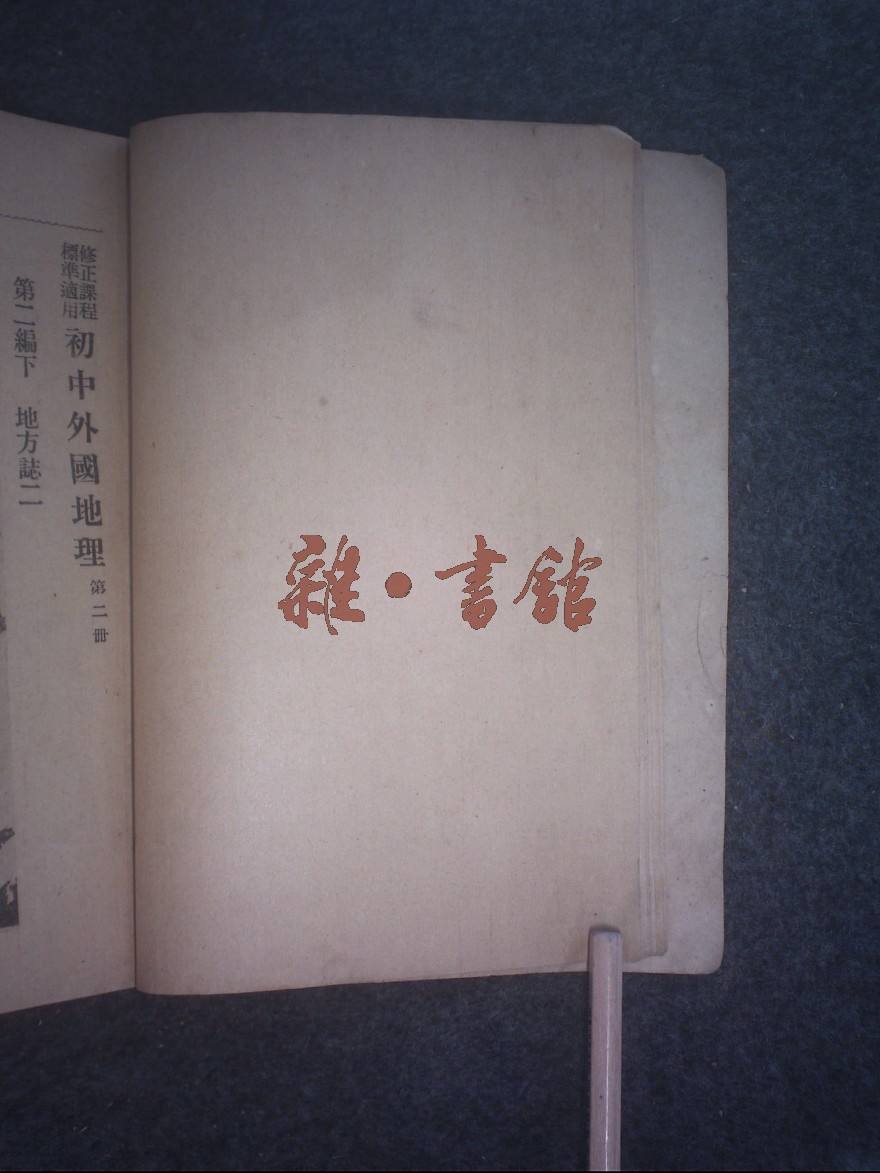 修正課程
標準適用
初中外國地理 第二冊
第二編下 地方誌二
雜·書館